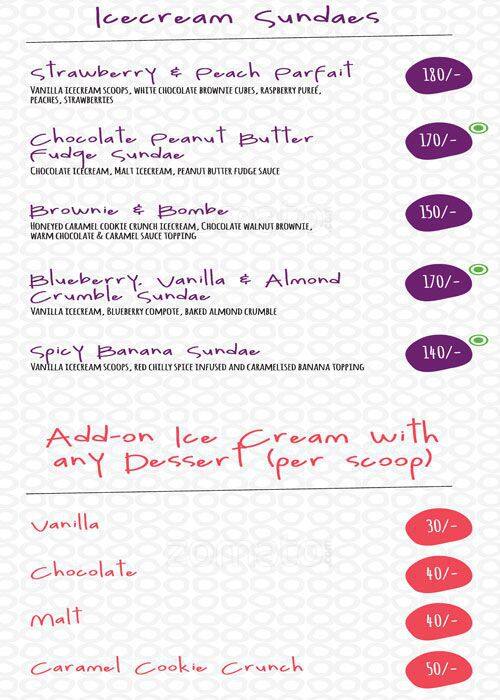 Icecream Sundaes
Strawberry & Peach Parfait 180/-
Vanilla icecream scoops, white chocolate brownie cubes, raspberry pureé,
peaches, strawberries
Chocolate Peanut Butter 170/-
Fudge Sundae
Chocolate icecream, Malt icecream, peanut butter fudge sauce
Brownie & Bombe 150/-
Honeyed caramel cookie crunch icecream, Chocolate walnut brownie,
warm chocolate & caramel sauce topping
Blueberry, Vanilla & Almond 170/-
Crumble Sundae
Vanilla icecream, Blueberry compote, baked almond crumble
Spicy Banana Sundae 140/-
Vanilla icecream scoops, red chilly spice infused and caramelised banana topping
Add-on Ice Cream with
any Dessert (per scoop)
Vanilla 30/-
zomato
Chocolate 40/-
Malt 40/-
Caramel Cookie Crunch 50/-